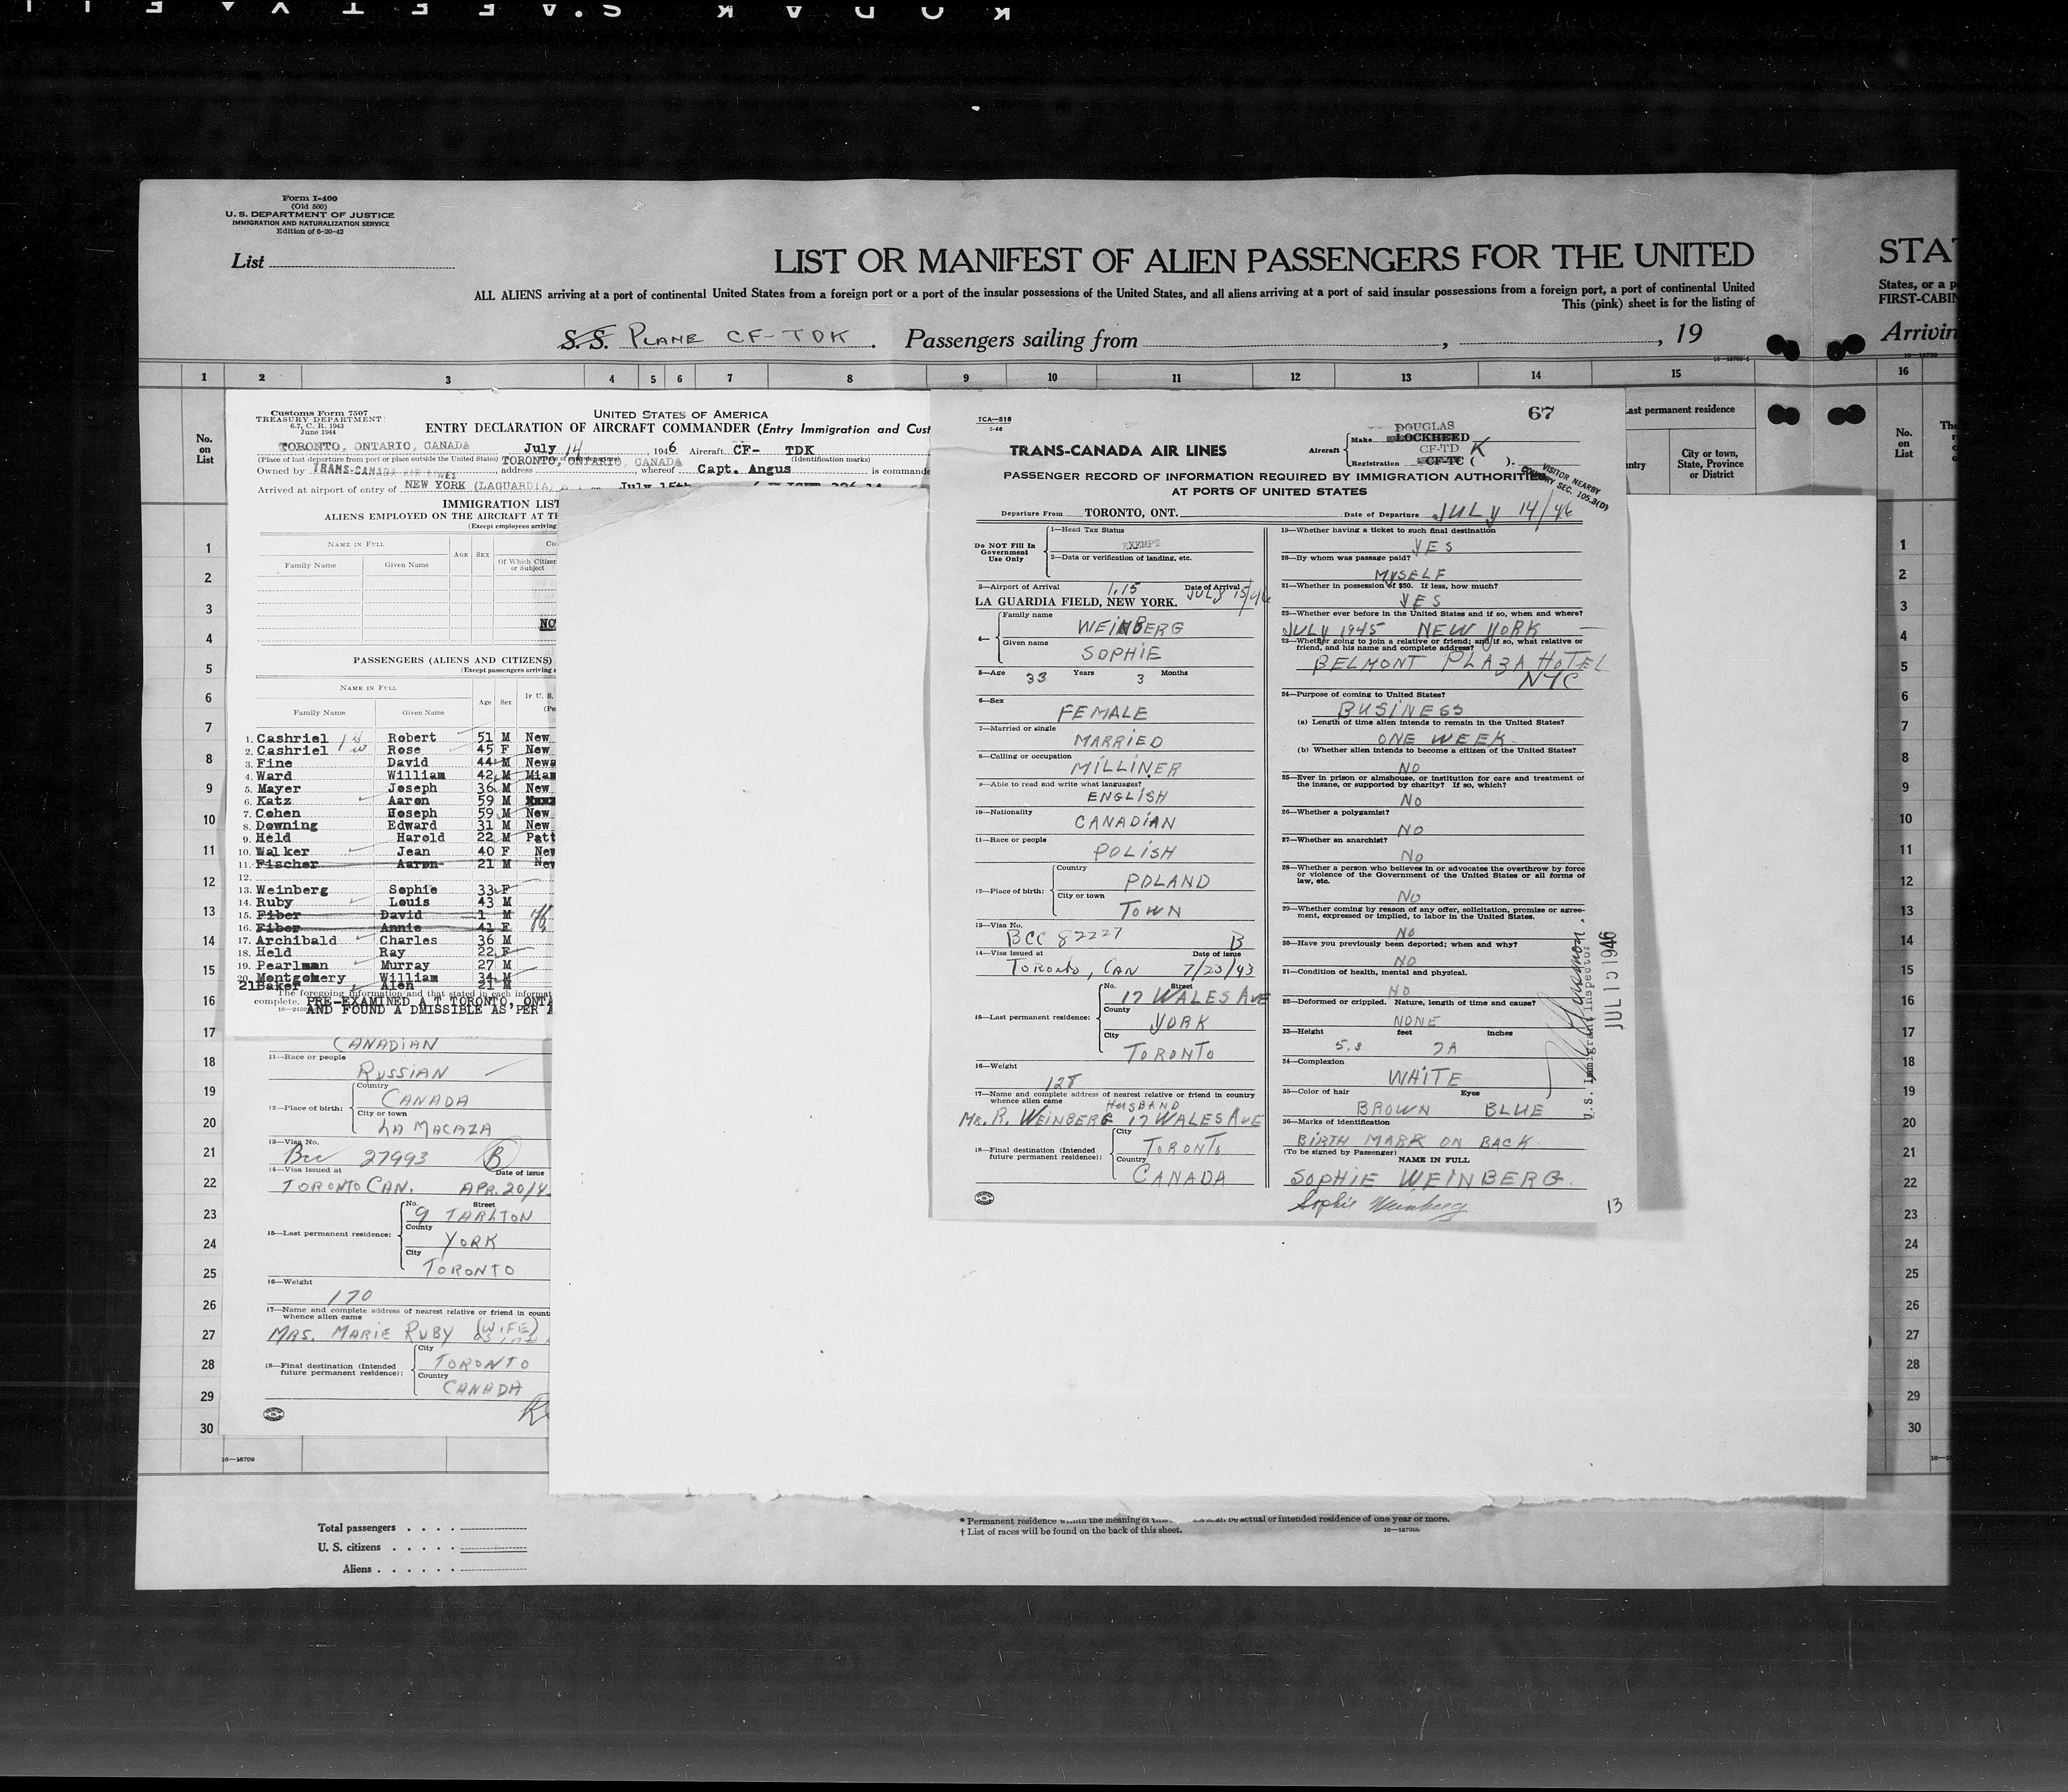 KODAK S.AFETY FIL
Form I-400
(Old 500)
U. S. DEPARTMENT OF JUSTICE
IMMIGRATION AND NATURALIZATION SERVICE
Edition of 6-20-42
List
LIST OR MANIFEST OF ALIEN PASSENGERS FOR THE UNITED
STA
ALL ALIENS arriving at a port of continental United States from a foreign port or a port of the insular possessions of the United States, and all aliens arriving at a port of said insular possessions from a foreign port, a port of continental United
This (pink) sheet is for the listing of
States, or a p
FIRST-CABIN
S.S. PLANE CF-TDK . Passengers sailing from , , 19
Arrivin
1 2 3 4 5 6 7 8 9 10 11 12 13 14 15 16
No. on List
Last permanent residence
ntry
City or town, State, Province or District
No. on List
The
1
2
3
4
5
6
7
8
9
10
11
12
13
14
15
16
17
18
19
20
21
22
23
24
25
26
27
28
29
30
Customs Form 7507
TREASURY DEPARTMENT
6.7, C. R. 1943
June 1944
UNITED STATES OF AMERICA
ENTRY DECLARATION OF AIRCRAFT COMMANDER (Entry Immigration and Cust
TORONTO, ONTARIO, CANADA July 14, 1946 Aircraft CF- TDK
(Place of last departure from port or place outside the United States) (Identification marks)
Owned by TRANS-CANADA AIR LINES address TORONTO, ONTARIO, CANADA whereof Capt. Angus is commande
Arrived at airport of entry of NEW YORK (LAGUARDIA) on July 15th
IMMIGRATION LIST
ALIENS EMPLOYED ON THE AIRCRAFT AT TH
(Except employees arriving
NAME IN FULL AGE SEX Co
Family Name Given Name Of Which Citizen or Subject
NO
PASSENGERS (ALIENS AND CITIZENS)
(Except passengers arriving
NAME IN FULL Age Sex If U. S.
Family Name Given Name (Pe
1. Cashriel Robert 51 M New
2. Cashriel Rose 45 F New
3. Fine David 44 M Newa
4. Ward William 42 M Miam
5. Mayer Joseph 36 M New
6. Katz Aaron 59 M
7. Cohen Joseph 59 M New
8. Downing Edward 31 M New
9. Held Harold 22 M Patt
10. Walker Jean 40 F New
11. Fischer Aaron 21 M New
12.
13. Weinberg Sophie 33 F
14. Ruby Louis 43 M
15. Fiber David 1 M
16. Fiber Annie 41 F
17. Archibald Charles 36 M
18. Held Ray 22 F
19. Pearlman Murray 27 M
20. Montgomery William 34 M
21 Baker Alen 21 M
The foregoing information and that stated in each informat
complete. PRE-EXAMINED A T TORONTO, ONTA
AND FOUND A DMISSIBLE AS PER A
CANADIAN
11—Race or people
RUSSIAN
12—Place of birth:
Country
CANADA
City or town
LA MACAZA
13—Visa No.
BCC 27993 B
14—Visa issued at Date of issue
TORONTO CAN. APR. 20/4
15—Last permanent residence:
No. Street
9 TARLTON
County
YORK
City
TORONTO
16—Weight
170
17—Name and complete address of nearest relative or friend in count
whence alien came
MRS. MARIE RUBY (WIFE)
18—Final destination (Intended future permanent residence):
City
TORONTO
Country
CANADA
TCA—518
3-46
67
TRANS-CANADA AIR LINES
Aircraft
Make DOUGLAS LOCKHEED
Registration CF-TD K CF-TC ( ).
PASSENGER RECORD OF INFORMATION REQUIRED BY IMMIGRATION AUTHORITIE
AT PORTS OF UNITED STATES
VISITOR NEARBY
COUNTRY SEC. 105.3(D)
Departure From TORONTO, ONT. Date of Departure JULY 14/46
Do NOT Fill In
Government
Use Only
1—Head Tax Status
EXEMPT
2—Data or verification of landing, etc.
3—Airport of Arrival 1.15 Date of Arrival
LA GUARDIA FIELD, NEW YORK. JULY 15/46
4—
Family name
WEINBERG
Given name
SOPHIE
5—Age 33 Years 3 Months
6—Sex
FEMALE
7—Married or single
MARRIED
8—Calling or occupation
MILLINER
9—Able to read and write what languages?
ENGLISH
10—Nationality
CANADIAN
11—Race or people
POLISH
12—Place of birth:
Country
POLAND
City or town
TOWN
13—Visa No.
BCC 82227 B
14—Visa issued at Date of issue
TORONTO, CAN 7/23/43
15—Last permanent residence:
No. Street
17 WALES AVE
County
YORK
City
TORONTO
16—Weight
128
17—Name and complete address of nearest relative or friend in country
whence alien came
HUSBAND
MR. R. WEINBERG 17 WALES AVE
18—Final destination (Intended future permanent residence):
City
TORONTO
Country
CANADA
19—Whether having a ticket to such final destination
YES
20—By whom was passage paid?
MYSELF
21—Whether in possession of $50. If less, how much?
YES
22—Whether ever before in the United States and if so, when and where?
JULY 1945 NEW YORK
23—Whether going to join a relative or friend; and if so, what relative or
friend, and his name and complete address?
BELMONT PLAZA HOTEL
NYC
24—Purpose of coming to United States?
BUSINESS
(a) Length of time alien intends to remain in the United States?
ONE WEEK
(b) Whether alien intends to become a citizen of the United States?
NO
25—Ever in prison or almshouse, or institution for care and treatment of
the insane, or supported by charity? If so, which?
NO
26—Whether a polygamist?
NO
27—Whether an anarchist?
NO
28—Whether a person who believes in or advocates the overthrow by force
or violence of the Government of the United States or all forms of
law, etc.
NO
29—Whether coming by reason of any offer, solicitation, promise or agree-
ment, expressed or implied, to labor in the United States.
NO
30—Have you previously been deported; when and why?
NO
31—Condition of health, mental and physical.
NO
32—Deformed or crippled. Nature, length of time and cause?
NONE
33—Height feet inches
34—Complexion
WHITE
35—Color of hair Eyes
BROWN BLUE
36—Marks of identification
BIRTH MARK ON BACK
(To be signed by Passenger)
NAME IN FULL
SOPHIE WEINBERG
Sophie Weinberg
13
U.S. Immigrant Inspector
JUL 15 1946
16—18709
Total passengers . . . .
U. S. citizens . . . . .
Aliens . . . . . .
* Permanent residence within the meaning of this be actual or intended residence of one year or more.
† List of races will be found on the back of this sheet.
16—18709b